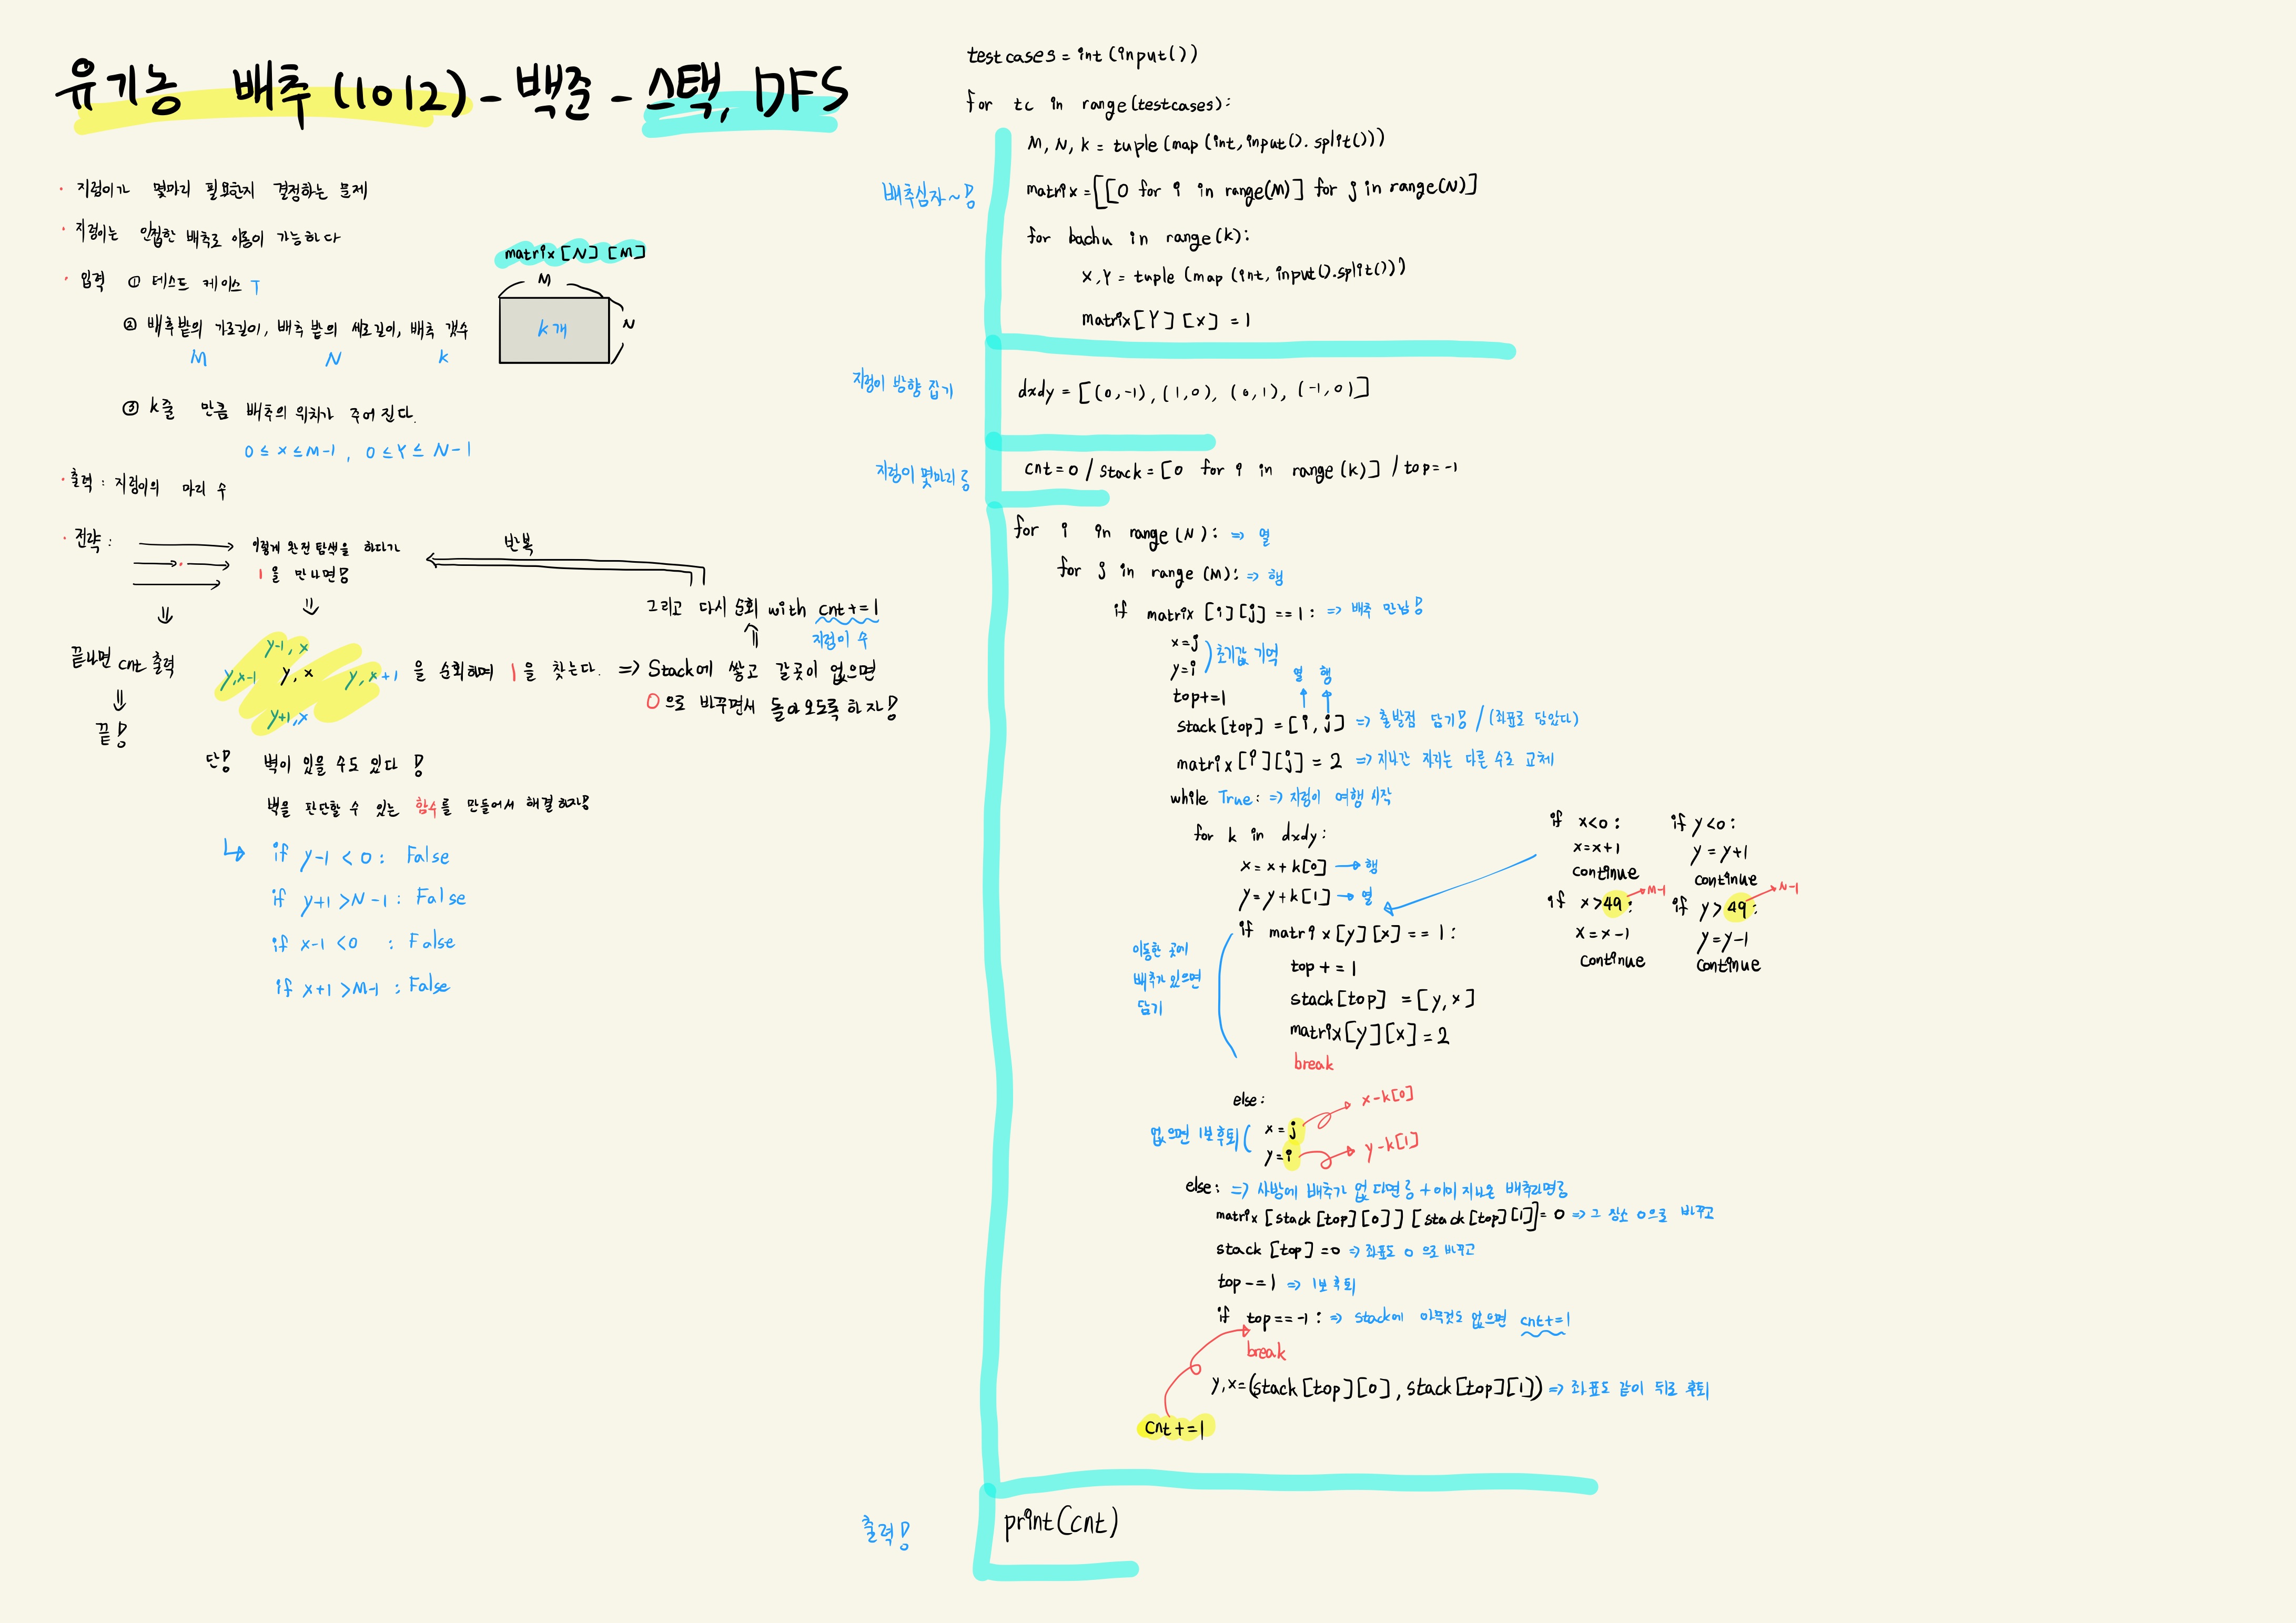 유기농 배추(1012) - 백준 - 스택, DFS
· 지렁이가 몇마리 필요한지 결정하는 문제
· 지렁이는 인접한 배추로 이동이 가능하다
· 입력 ① 테스트 케이스 T
② 배추밭의 가로길이, 배추 밭의 세로길이, 배추 갯수
M N K
matrix[N][M]
M
K개
N
③ K줄 만큼 배추의 위치가 주어 진다.
0 ≤ X ≤ M-1 , 0 ≤ Y ≤ N-1
· 출력 : 지렁이의 마리 수
· 전략 :
이렇게 완전 탐색을 하다가
1을 만나면!
반복
그리고 다시 순회 with cnt+=1
지렁이 수
끝나면 cnt 출력
끝!
y-1, x
y,x-1 y, x y, x+1 을 순회하며 1을 찾는다. => Stack에 쌓고 갈곳이 없으면
y+1,x
0으로 바꾸면서 돌아오도록 하자!
단! 벽이 있을 수도 있다 !
벽을 판단할 수 있는 함수를 만들어서 해결하자!
if y-1 < 0 : False
if y+1 > N-1 : False
if x-1 < 0 : False
if x+1 > M-1 : False
testcases = int(input())
for tc in range(testcases):
배추심자~!
M, N, K = tuple(map(int,input().split()))
matrix = [[0 for i in range(M)] for j in range(N)]
for bachu in range(k):
X,Y = tuple(map(int, input().split()))
matrix[Y][X] = 1
지렁이 방향 집기
dxdy = [(0,-1), (1,0), (0,1), (-1,0)]
지렁이 몇마리?
cnt=0 / stack = [0 for i in range(k)] / top=-1
for i in range(N): => 열
for j in range(M): => 행
if matrix[i][j] == 1: => 배추 만남!
x=j
y=i
초기값 기억
top+=1
열 행
stack[top] = [i, j] => 출발점 담기! / (좌표로 담았다)
matrix[i][j] = 2 => 지나간 자리는 다른 수로 교체
while True: => 지렁이 여행 시작
for k in dxdy:
x = x + k[0] → 행
y = y + k[1] → 열
if x<0:
x=x+1
continue
if y<0:
y=y+1
continue
if x>49: M-1
x=x-1
continue
if y>49: N-1
y=y-1
continue
if matrix[y][x] == 1:
이동한 곳에
배추가 있으면
담기
top += 1
stack[top] = [y,x]
matrix[y][x] = 2
break
else:
없으면 1보후퇴
x=j x-k[0]
y=i y-k[1]
else: => 사방에 배추가 없다면? + 이미 지나온 배추라면?
matrix[stack[top][0]][stack[top][1]] = 0 => 그 장소 0으로 바꾸고
stack[top] = 0 => 좌표도 0으로 바꾸고
top -= 1 => 1보 후퇴
if top == -1: => stack에 아무것도 없으면 cnt+=1
break
y,x=(stack[top][0], stack[top][1]) => 좌표도 같이 뒤로 후퇴
cnt+=1
출력!
print(cnt)